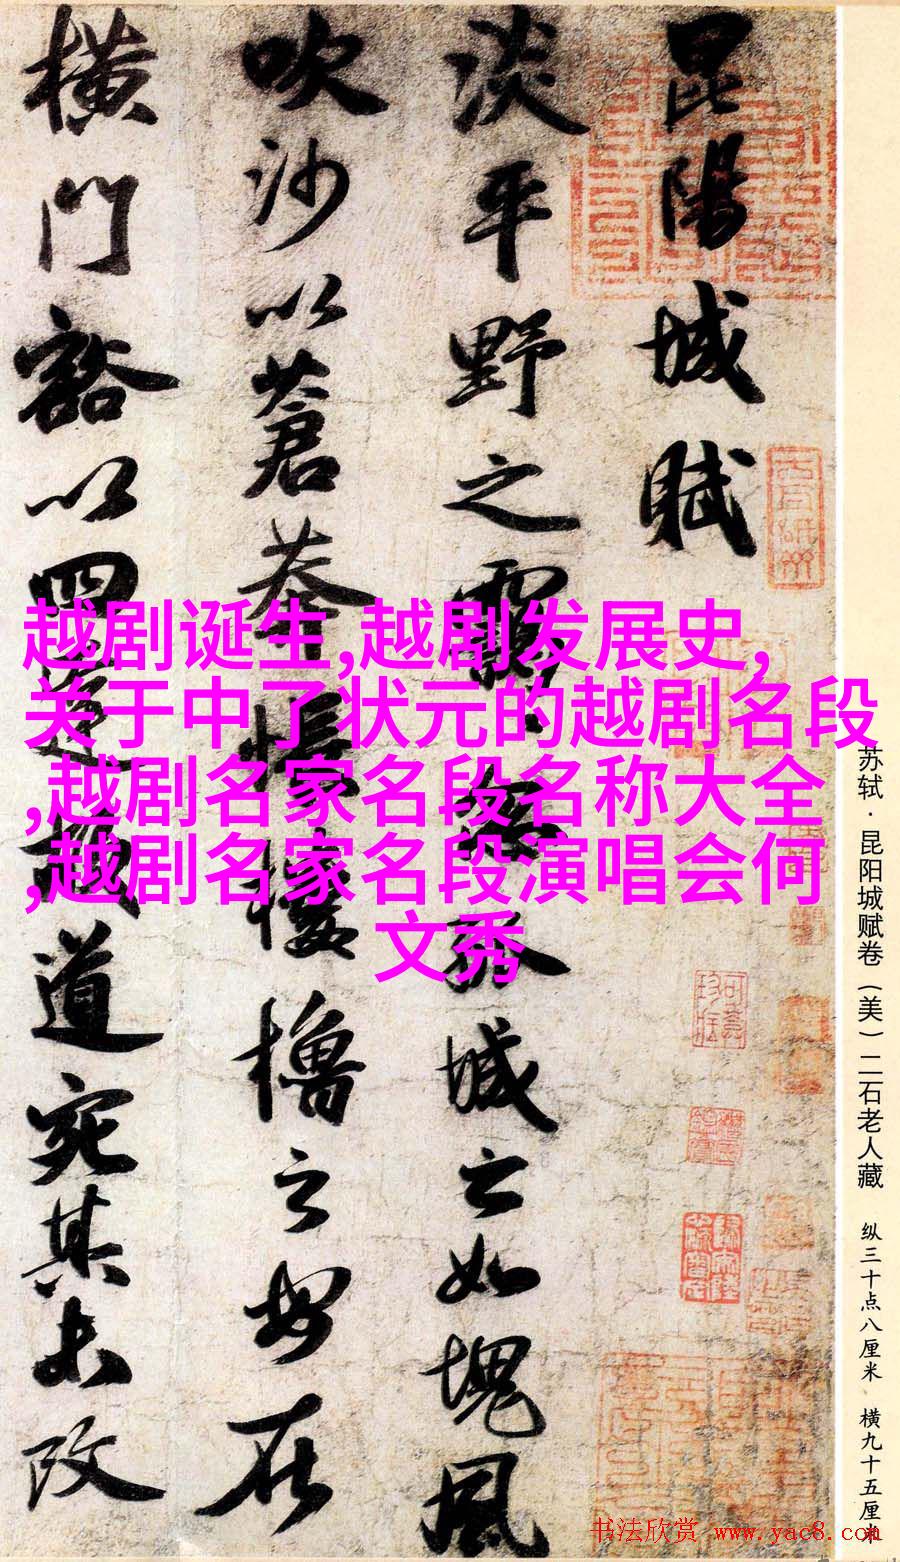 苏轼·昆阳城赋卷（美）二石老人藏 纵三十点八厘米 横九十五厘米
昆陽城賦
淡平野之靄靄忽孤城之如塊風
吹沙以蒼莽悵樓櫓之安在
橫門豁以四達故道宛其未改
越剧诞生,越剧发展史,
关于中了状元的越剧名段
,越剧名家名段名称大全
,越剧名家名段演唱会何
文秀
书法欣赏 www.yac8.com